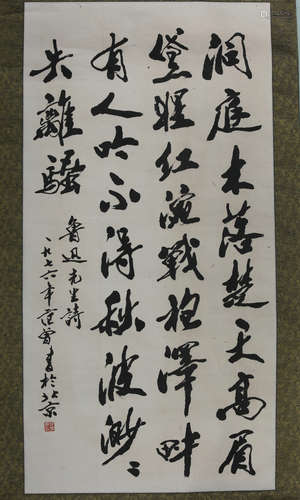 洞庭木落楚天高眉
黛猩红涴戰袍澤畔
有人吟不得秋波渺〻
失離騷
魯迅先生詩
一九七六年范曾書於北京